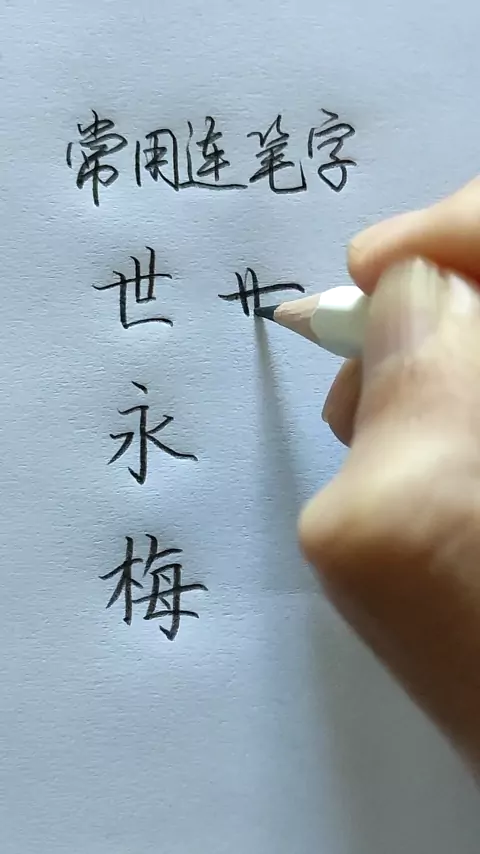 常用连笔字
世
永
梅